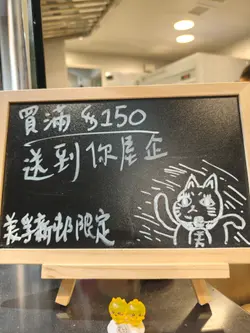 買滿 $150
送到你屋企
美孚新邨限定